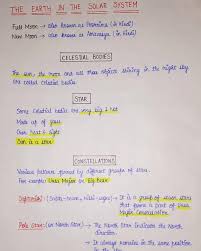 THE EARTH IN THE SOLAR SYSTEM
Full Moon → also known as Poornima (in Hindi)
New Moon → also known as Amavasya (in Hindi)
CELESTIAL BODIES
The sun, the moon and all those objects shining in the night sky
are called celestial bodies.
STAR
Some celestial bodies are very big & hot
Made up of gases
Own heat & light
Sun is a star
CONSTELLATIONS
Various patterns formed by different groups of stars.
For example: Ursa Major or Big Bear
Saptarishi (Sapta-seven, rishi-sages) → It is a group of seven stars
that forms a part of Ursa
Major Constellation.
Pole Star (or North Star) → The North Star indicates the North
direction.
→ It always remains in the same position
in the sky.